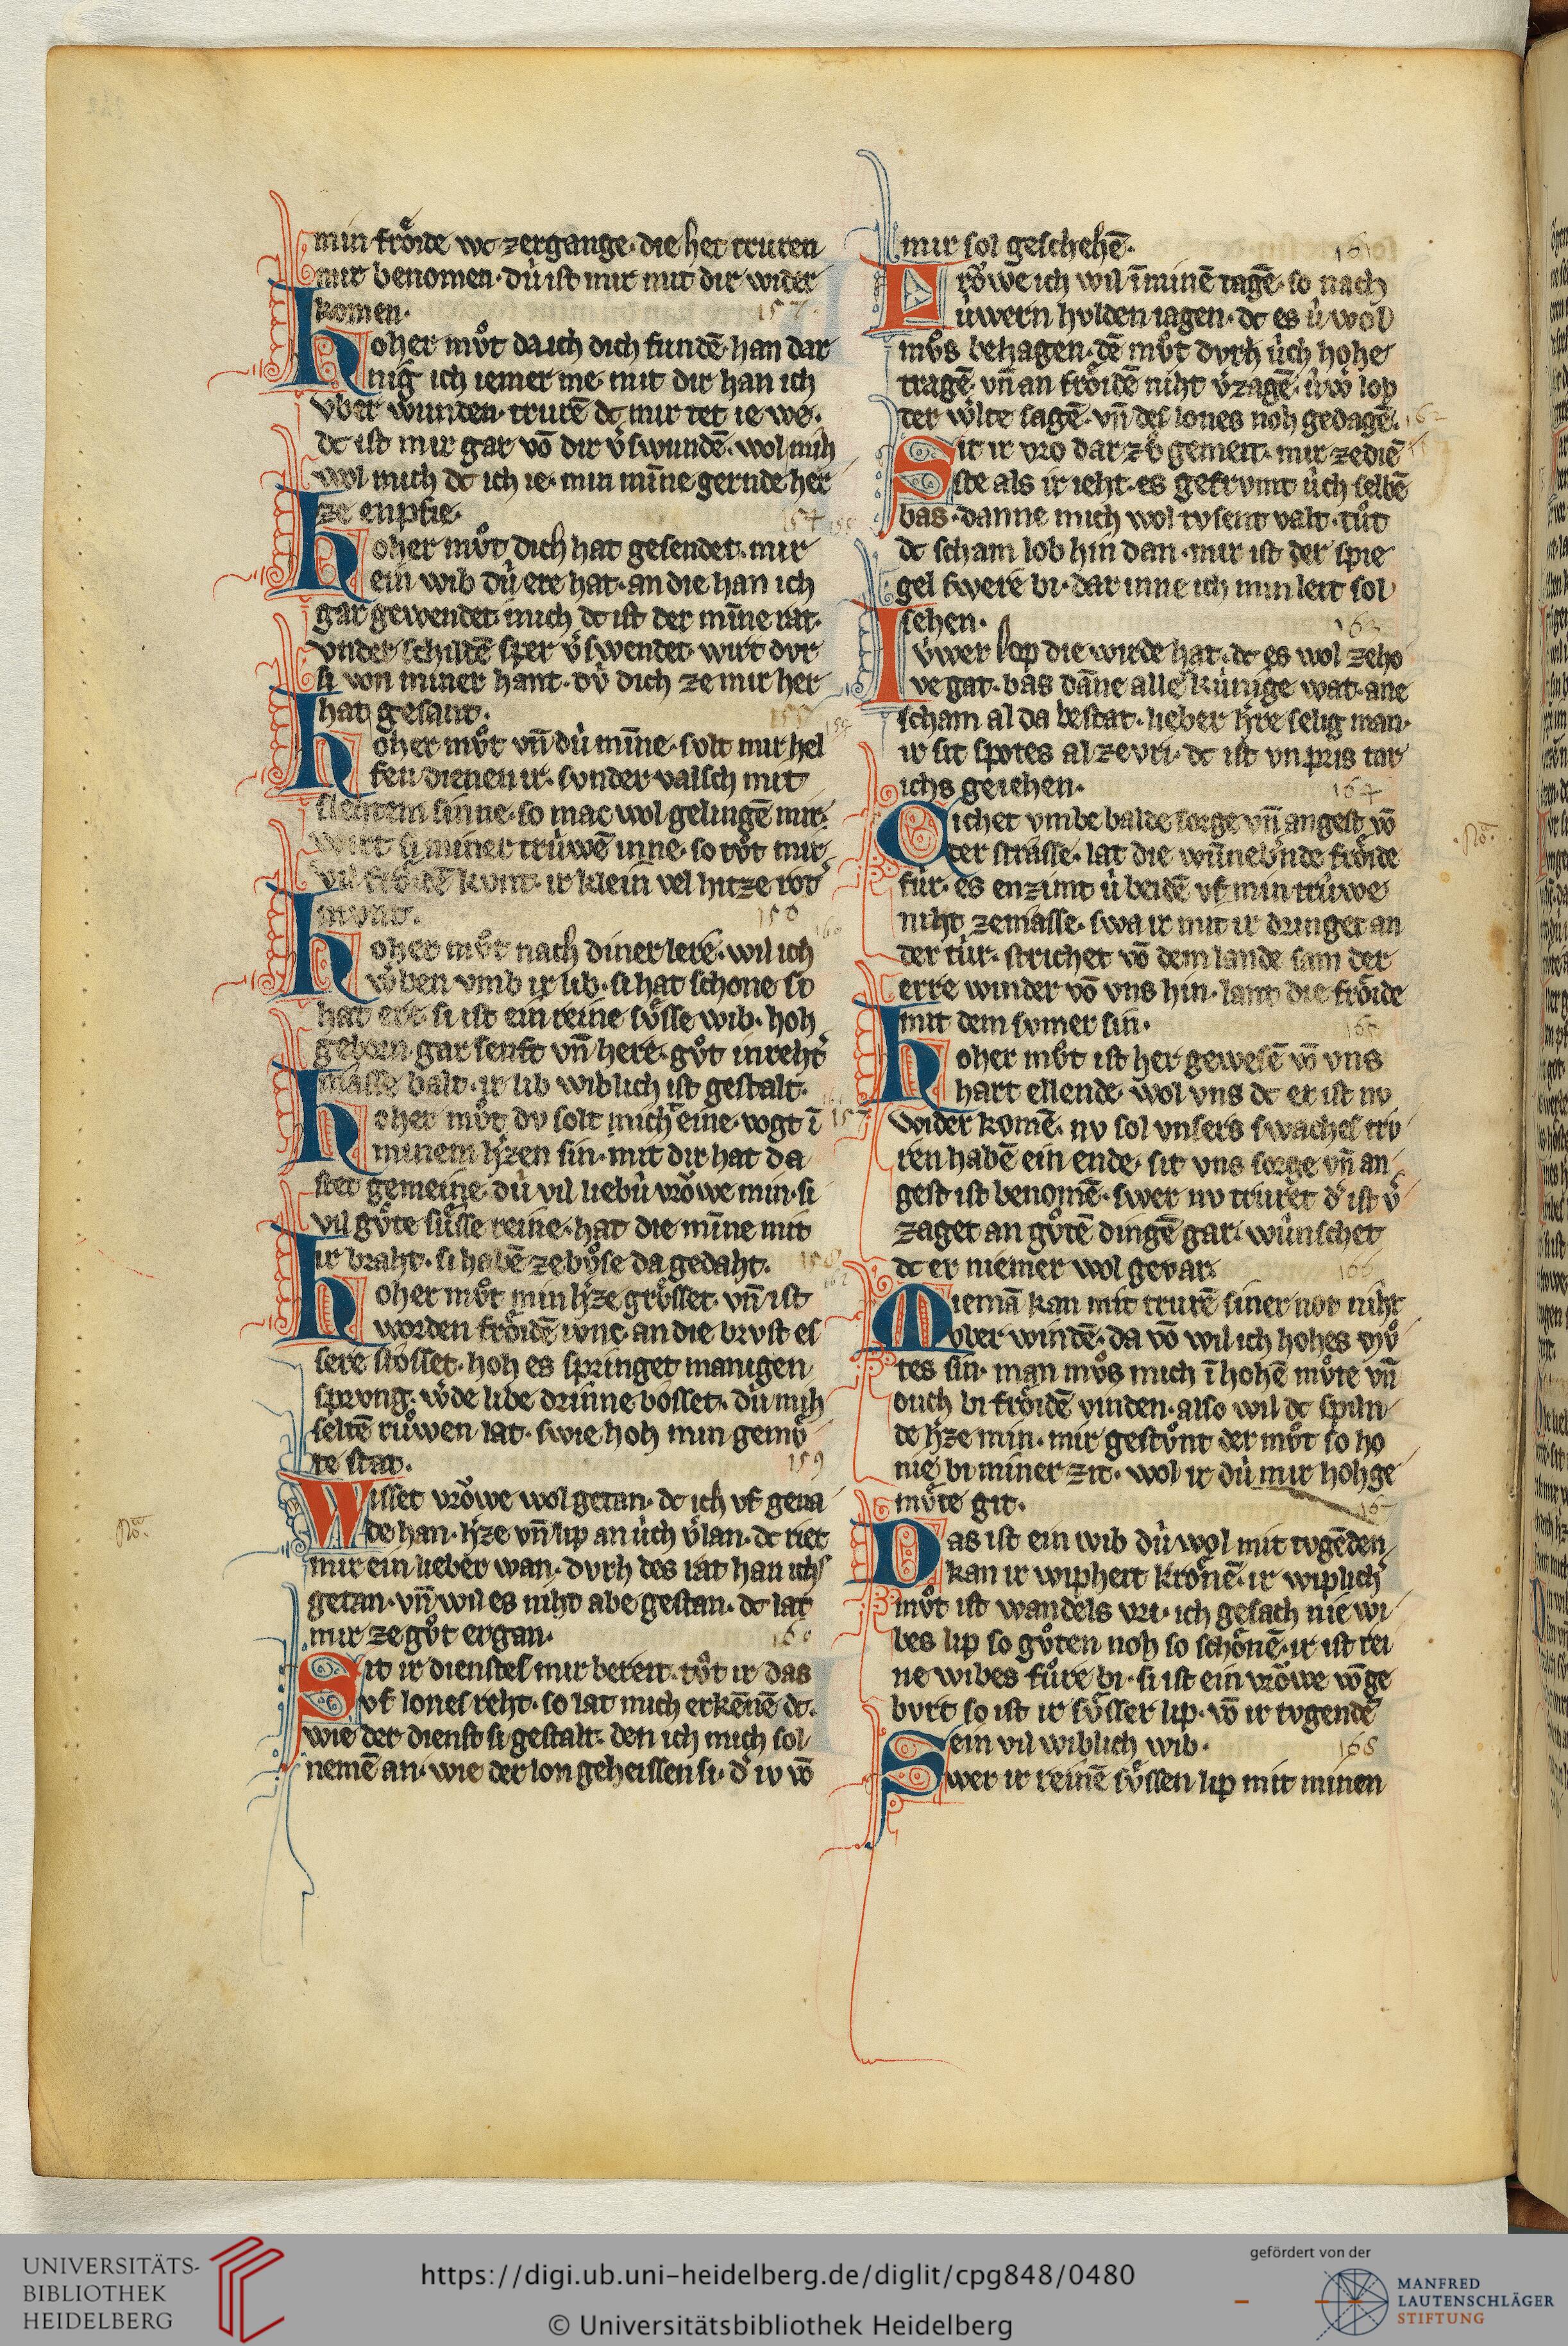 min froͤide wc zergange · die het truren
mir benomen · dv̍ ist mir mit dir wider
komen ·
157
hoher mvͦt da ich dich fundē · han dar
nig ich iemer me · mit dir han ich
vber wunden · trurē dc mir tet ie we ·
dc ist mir gar vō dir v̾swundē · wol mih
wol mich dc ich ie · min mīne gernde her
ze enpfie ·
154
hoher mvͦt dich hat gesendet · mir
ein wib dv̍ ere hat · an die han ich
gar gewendet · mich dc ist der mīne rat ·
vnder schiltē sper v̾swendet · wirt dvr
si von miner hant · dv̍ dich ze mir her
hat gesant ·
hoher mvͦt vn̄ dv̍ mīne · solt mir hel
fen dienen ir · svnder valsch mit
sinne · so mac wol gelingē mir ·
wirt si miner trv̍wē inne · so tvͦt mir
vil froͤidē kvnt · ir klein vel hitze rot
mvnt ·
150
hoher mvͦt nach diner lere · wil ich
w̾ben vmb ir lib · si hat schone so
hat ere · si ist ein reine svͤsse wib · hoh
geborn · gar senft vn̄ here · gvͦt in reht̾
masse balt · ir lib wiblich ist gestalt ·
hoher mvͦt dv solt mich eine · vogt ī
157
minem h̾zen sin · mit dir hat da
stet gemeine · dv̍ vil liebv̍ vrowe min · si
vil gvͤte svͤsse reine · hat die mīne mit
ir braht · si habē ze boͤse da gedaht ·
hoher mvͦt min h̾ze groͤsset · vn̄ ist
worden froͤidē ivng · an die brvst es
sere stosset · hoh es springet manigen
sprvng · w̾de libe drinne bosset · dv̍ mih
seltē rvͦwen lat · swie hoh min gemvͤ
te stat ·
159
Wisset vrowe wol getan · dc ich vf gena
de han · h̾ze vn̄ lip an v̍ch v̾lan · dc riet
mir ein lieber wan · dvrh des rat han ichs
getan · vn̄ wil es niht abe gestan · dc lat
mir ze gvͦt ergan ·
160
Sit ir dienstes mir bereit · tvͦt ir das
vf lones reht · so lat mich erkēnē dc ·
wie der dienst si gestalt · den ich mich sol
nemē an · wie der lon geheissen si · d̾ iv vō
mir sol geschehē ·
161
Frowe ich wil ī minē tagē · so nach
v̍wern hvlden iagen · dc es v̍ wol
mvͦs behagen · dē mvͦt dvrh v̍ch hohe
tragē · vn̄ an froͤidē niht v̾zagē · v̍w̾ lop
der w̾lte sagē · vn̄ des lones noh gedagē ·
162
Sit ir vro dar zvͦ gemeit · mir ze diē
ste als ir ieht · es gefrvmt v̍ch selbē
bas · danne mich wol tvsent valt · tvͦt
dc scham lob hin dan · mir ist der spie
gel swere bi · dar inne ich min leit sol
sehen ·
163
Iv̍wer lop die wirde hat · dc es wol ze ho
ve gat · bas dāne alle kv̍nige wat · ane
scham al da bestat · lieber h̾re selig man ·
ir sit spotes al ze vri · dc ist vnpris tar
ichs geiehen ·
164
Sichet vmbe balde sorge vn̄ angest vō
der strasse · lat die wn̄neb̾nde froͤide
fv̍r · es enzimt v̍ beidē vf min trv̍we
niht ze masse · swa ir mit ir dringet an
der tv̍r · strichet vō dem lande sam der
erre winder vō vns hin · lant die froͤide
mit dem svmer sin ·
165
hoher mvͦt ist her gewesē vō vns
hart ellende · wol vns dc er ist nv
wider komē · nv sol vnsers swaches trv
ren habē ein ende · sit vns sorge vn̄ an
gest ist benomē · swer nv truret d̾ ist v̾
zaget an gvͦtē dingē gar · wv̍nschet
dc er niemer wol gevar ·
166
Niemā kan mit trurē siner not niht
vber windē · da vō wil ich hohes mvͦ
tes sin · man mvͦs mich ī hohē mvͦte vn̄
ouch bi froͤidē vinden · also wil dc spiln
de h̾ze min · mir gestvͦnt der mvͦt so ho
nie bi miner zit · wol ir dv̍ mir hohge
mvͤte git ·
167
Das ist ein wib dv̍ wol mit tvgēden
kan ir wipheit kroͤnē · ir wiplich
mvͦt ist wandels vri · ich gesach nie wi
bes lip so gvͦten noh so schoͤnē · ir ist rei
ne wibes fvͦre bi · si ist ein vrowe vō ge
bvrt so ist ir svͤsser lip · vō ir tvgendē
ein vil wiblich wib ·
168
Swer ir reinē svͤssen lip mit minen
UNIVERSITÄTS-
BIBLIOTHEK
HEIDELBERG
https://digi.ub.uni-heidelberg.de/diglit/cpg848/0480
© Universitätsbibliothek Heidelberg
gefördert von der
MANFRED
LAUTENSCHLÄGER
STIFTUNG